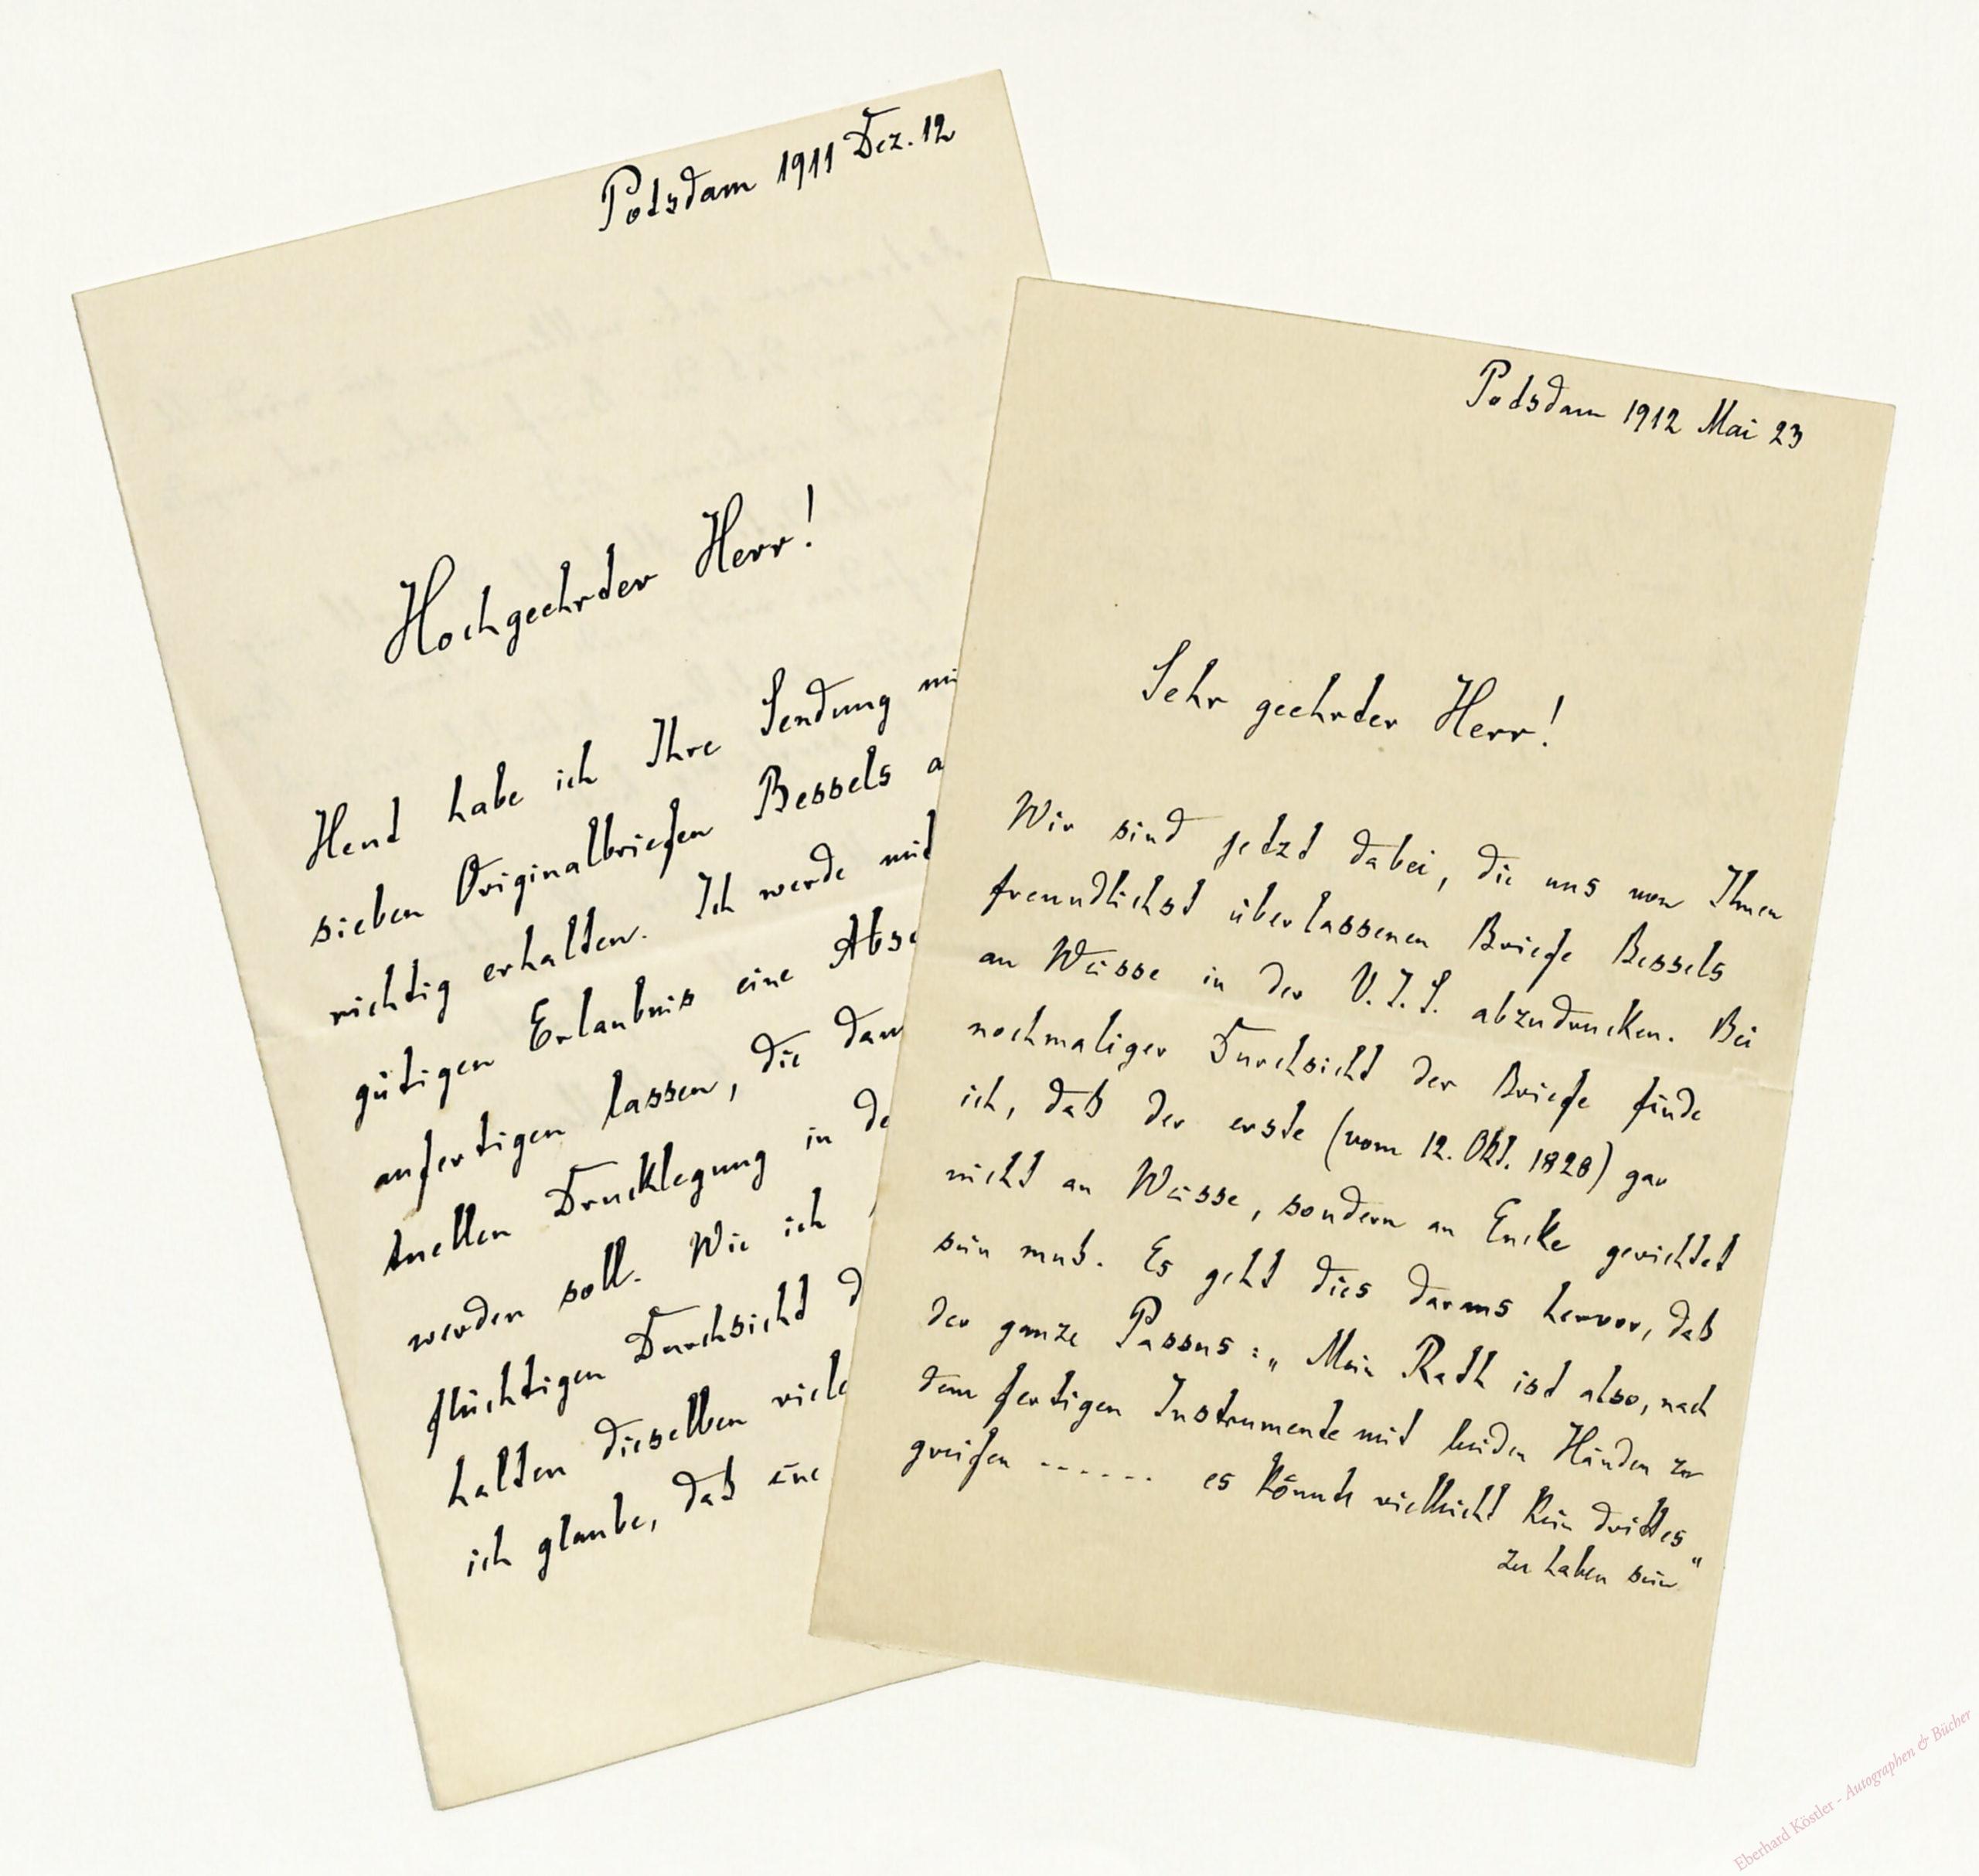 Potsdam 1911 Dez. 12
Hochgeehrter Herr!
Heut habe ich Ihre Sendung mi
sieben Originalbriefen Bessels a
richtig erhalten. Ich werde mit
gütigen Erlaubnis eine Absc
anfertigen lassen, die dan
tuellen Drucklegung in de
werden soll. Wie ich
flüchtigen Durchsicht d
halten dieselben viele
ich glaube, daß eine
Potsdam 1912 Mai 23
Sehr geehrter Herr!
Wir sind jetzt dabei, die uns von Ihnen
freundlichst überlassenen Briefe Bessels
an Weisse in der V.J.S. abzudrucken. Bei
nochmaliger Durchsicht der Briefe finde
ich, daß der erste (vom 12. Okt. 1828) gar
nicht an Weisse, sondern an Encke gerichtet
sein muß. Es geht dies daraus hervor, daß
der ganze Passus: „Mein Rath ist also, nach
dem fertigen Instrumente mit beiden Händen zu
greifen ...... es könnte vielleicht kein drittes
zu haben sein“
Eberhard Köstler - Autographen & Bücher